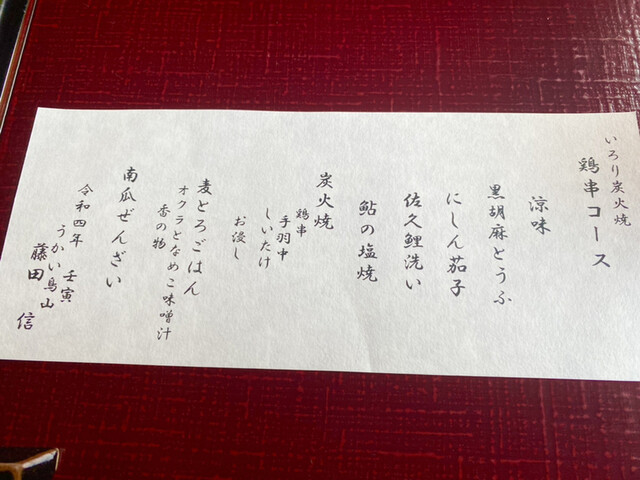 いろり炭火焼
鶏串コース
涼味
黒胡麻とうふ
にしん茄子
佐久鯉洗い
鮎の塩焼
炭火焼
鶏串
手羽中
しいたけ
お浸し
麦とろごはん
オクラとなめこ味噌汁
香の物
南瓜ぜんざい
令和四年 壬寅
うかい鳥山
藤田 信